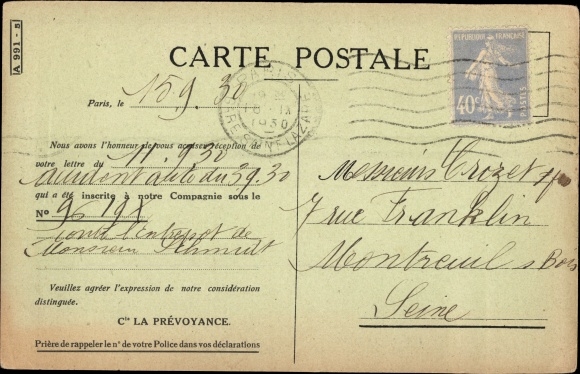 A 991 - B
CARTE POSTALE
RÉPUBLIQUE FRANÇAISE
40c
POSTES
PARIS
1930
RE ST LAZARE
Paris, le 15.9.30
Nous avons l'honneur de vous accuser réception de
votre lettre du 11.9.30
accident du 3.9.30
qui a été inscrite à notre Compagnie sous le
No 96 198
contre l'entrepot de
Monsieur Schmidt
Veuillez agréer l'expression de notre considération
distinguée.
Cie LA PRÉVOYANCE.
Prière de rappeler le no de votre Police dans vos déclarations
Messieurs Crozet
7 rue Franklin
Montreuil s Bois
Seine